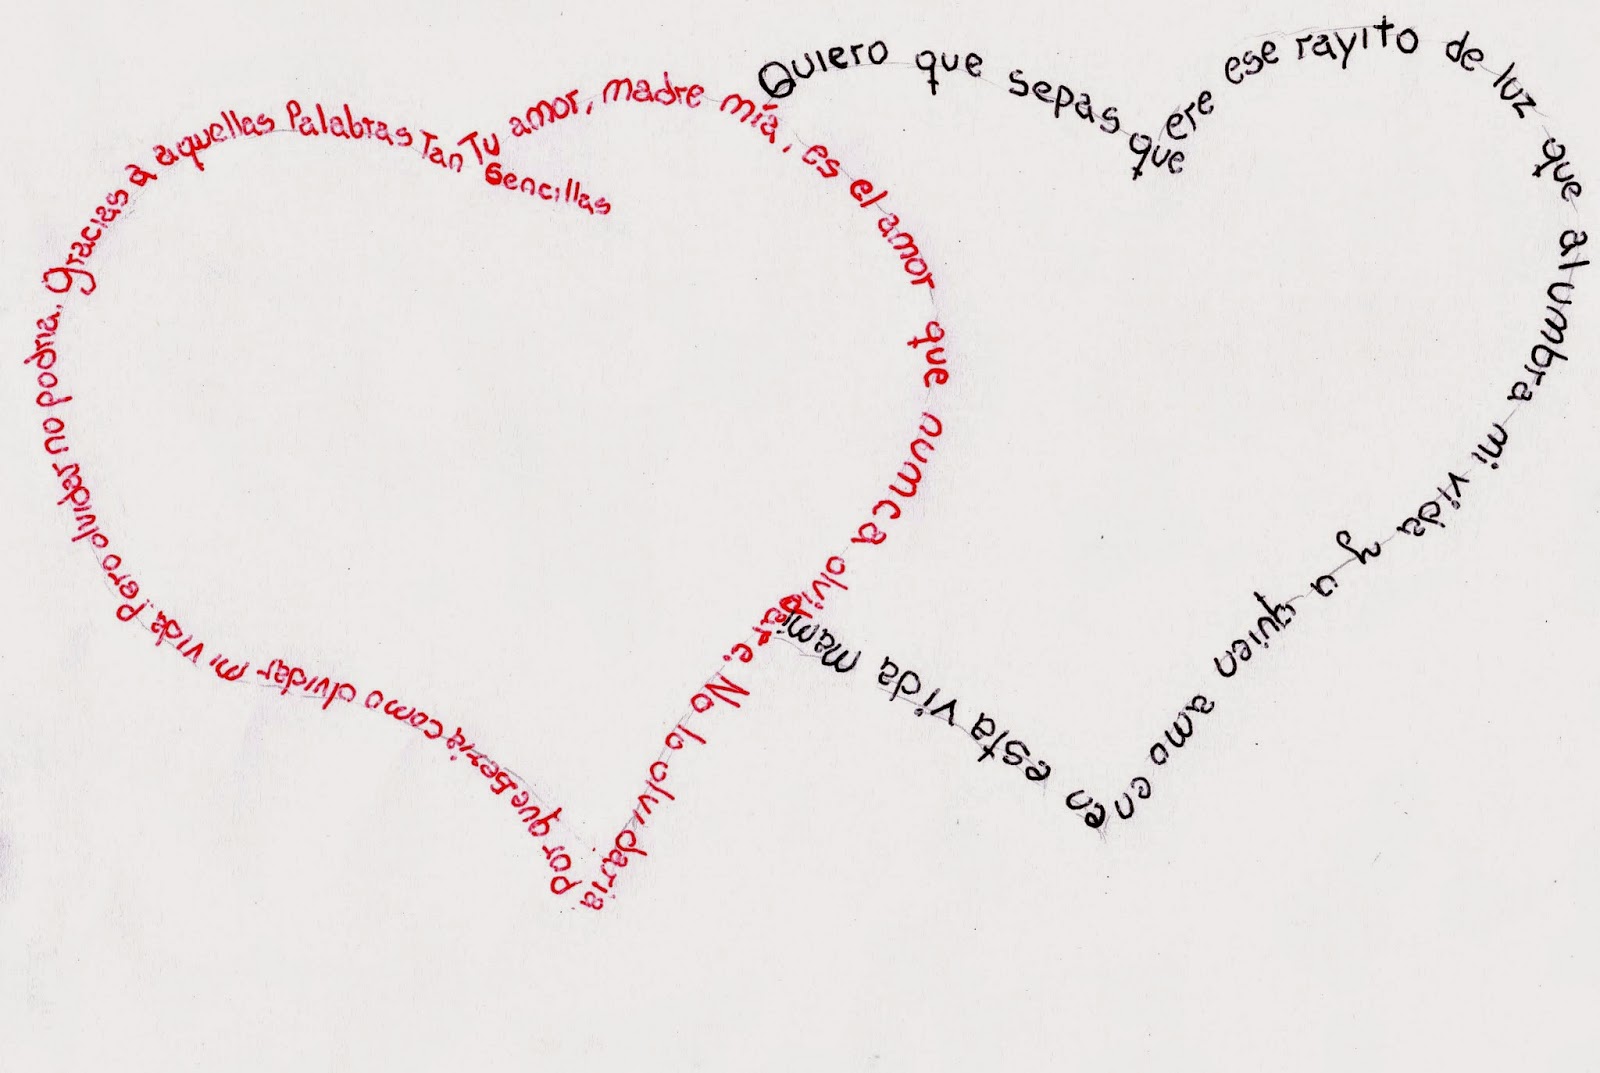 Tu amor, madre mía, es el amor que numca olvidare. No lo olvidaria Por que seria como olvidar mi vida. Pero olvidar no podria, gracias a aquellas Palabras Tan Sencillas
Quiero que sepas que ere ese rayito de luz que alumbra mi vida y a quien amo en en esta vida mami